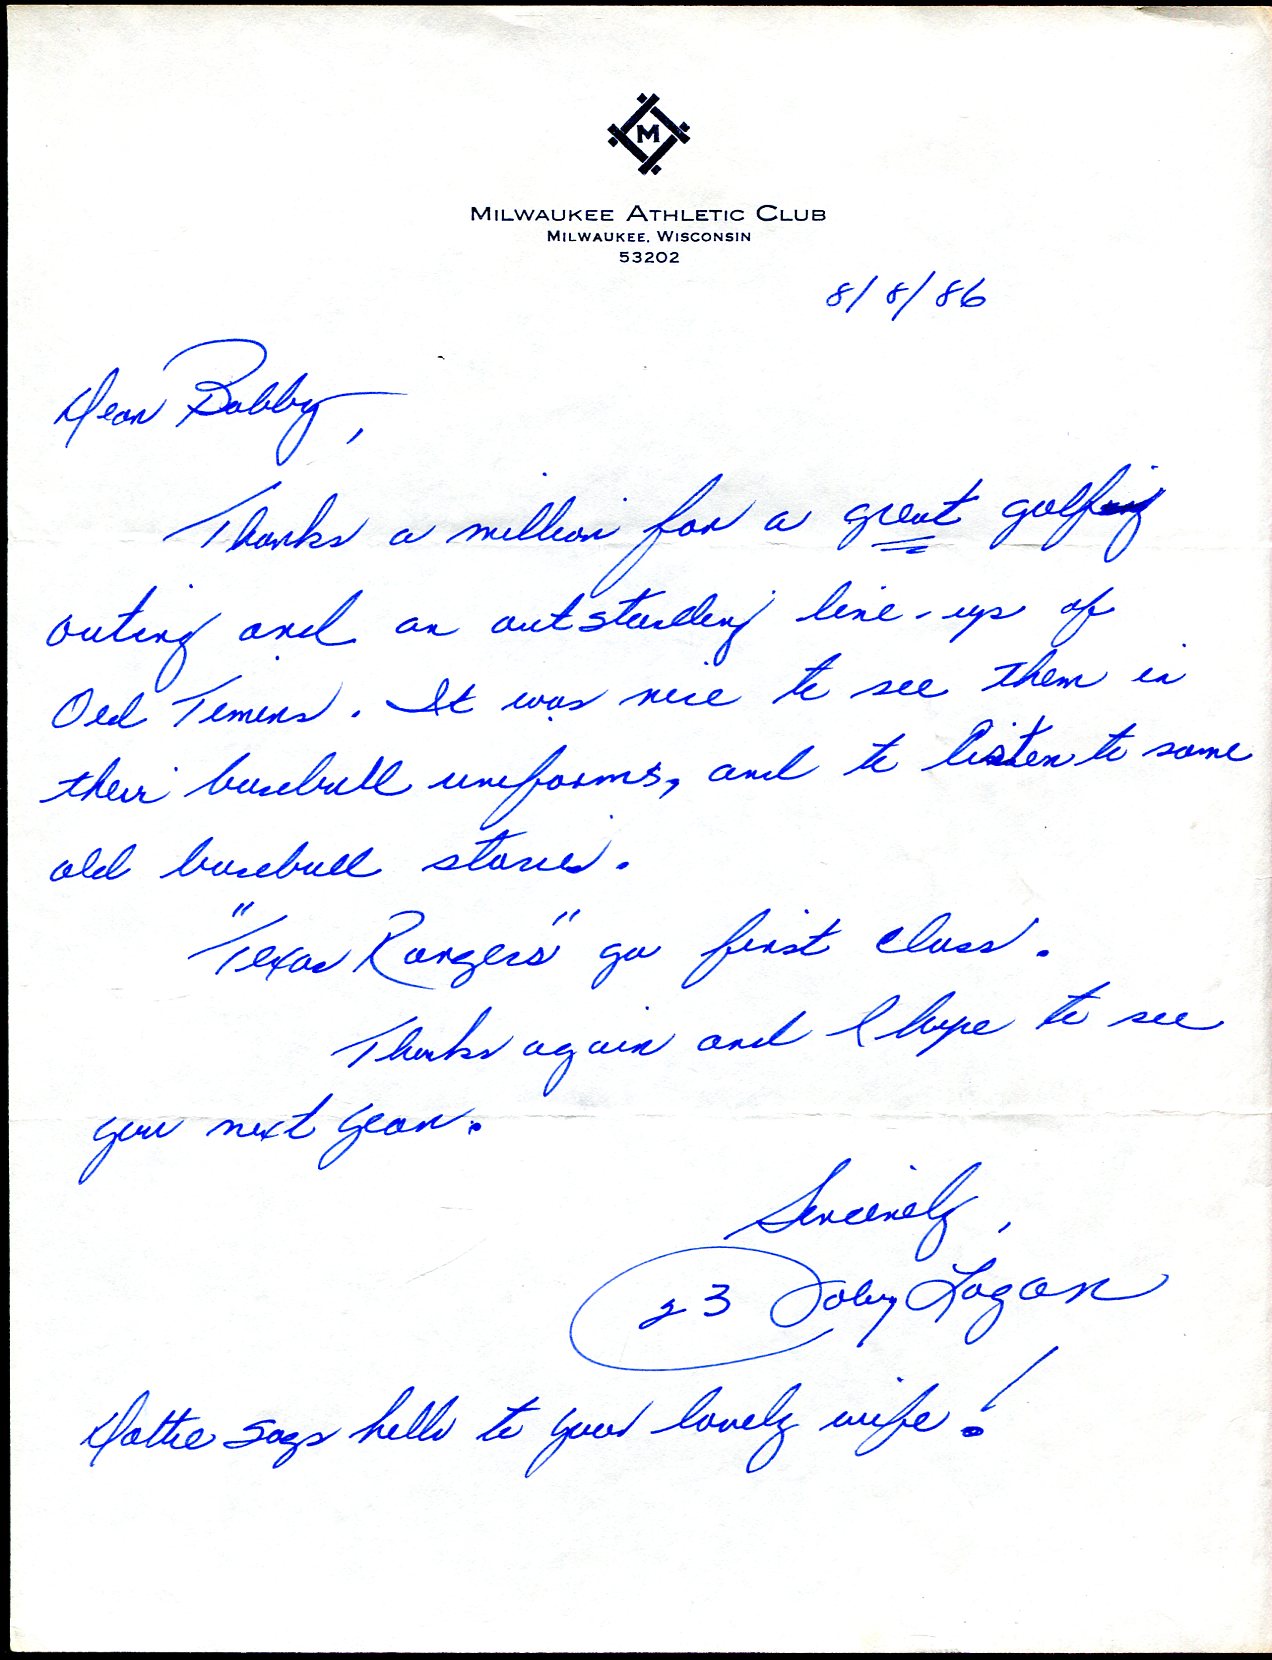 M
MILWAUKEE ATHLETIC CLUB
MILWAUKEE, WISCONSIN
53202
8/8/86
Dear Bobby,
Thanks a million for a great golfing
outing and an outstanding line-up of
Old Timers. It was nice to see them in
their baseball uniforms, and to listen to some
old baseball stories.
"Texas Rangers" go first class.
Thanks again and I hope to see
you next year.
Sincerely,
23 Johnny Logan
Dottie says hello to your lovely wife!